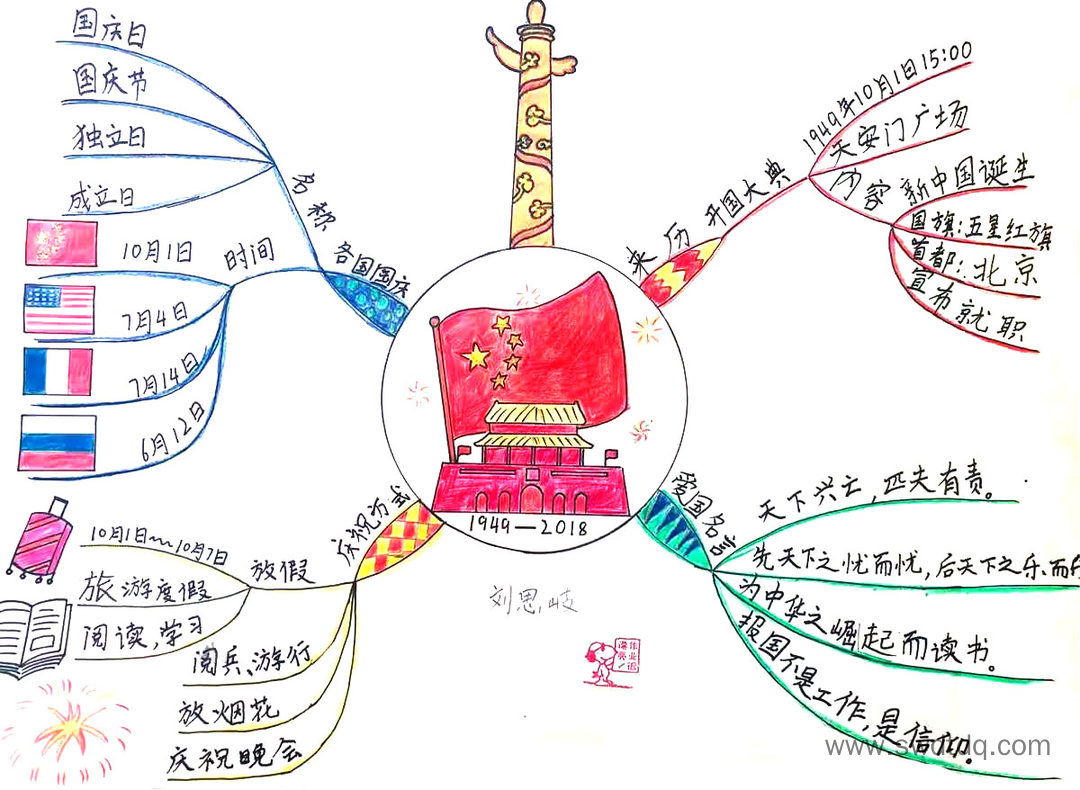 国庆日
国庆节
独立日
成立日
名称
各国国庆
时间
10月1日
7月4日
7月14日
6月12日
来历
开国大典
1949年10月1日15:00
天安门广场
内容
新中国诞生
国旗:五星红旗
首都:北京
宣布就职
1949—2018
爱国名言
天下兴亡,匹夫有责。
先天下之忧而忧,后天下之乐而
为中华之崛起而读书。
报国不是工作,是信仰。
庆祝方式
放假
10月1日~10月7日
旅游度假
阅读,学习
阅兵、游行
放烟花
庆祝晚会
刘思岐